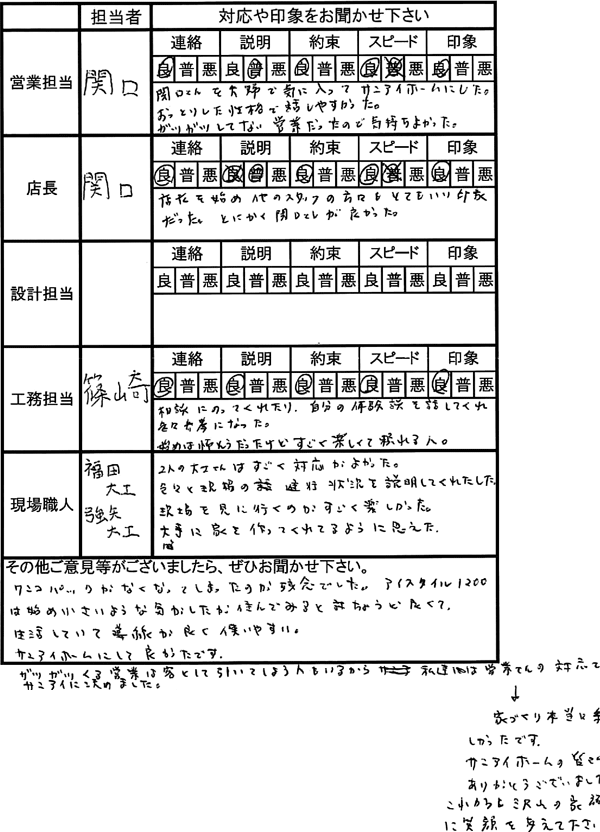 担当者 対応や印象をお聞かせ下さい
営業担当 関口
連絡 説明 約束 スピード 印象
良 普 悪 良 普 悪 良 普 悪 良 普 悪 良 普 悪
関口さんを夫婦で気に入ってサンアイホームにした。
おっとりした性格で話しやすかった。
ガツガツしてない営業だったので気持ちよかった。
店長 関口
連絡 説明 約束 スピード 印象
良 普 悪 良 普 悪 良 普 悪 良 普 悪 良 普 悪
店長を始め他のスタッフの方々もとてもいい印象
だった。とにかく関口さんが良かった。
設計担当
連絡 説明 約束 スピード 印象
良 普 悪 良 普 悪 良 普 悪 良 普 悪 良 普 悪
工務担当 篠崎
連絡 説明 約束 スピード 印象
良 普 悪 良 普 悪 良 普 悪 良 普 悪 良 普 悪
相談にのってくれたり、自分の体験談を話してくれ
色々参考になった。
始めは怖そうだったけどすごく楽しくて頼れる人。
現場職人
福田
大工
強矢
大工
2人の大工さんはすごく対応がよかった。
色々と現場の話 進行状況を説明してくれたした
現場を見に行くのがすごく楽しかった。
大事に家を作ってくれてるように思えた.
その他ご意見等がございましたら、ぜひお聞かせ下さい。
ワニコパックがなくなってしまったのが残念でした。アイスタイル1200
は始め小さいような気がしたが住んでみるとちょうど良くて、
生活していて導線が良く使いやすい。
サンアイホームにして良かたです.
ガツガツくる営業は客として引いてしまう人もいるから 私達は営業さんの対応で
サンアイに決めました。
↓
家づくり本当に楽
しかったです.
サンアイホームの皆さ
ありがとうございました
これからも沢山の家族
に笑顔を与えて下さい